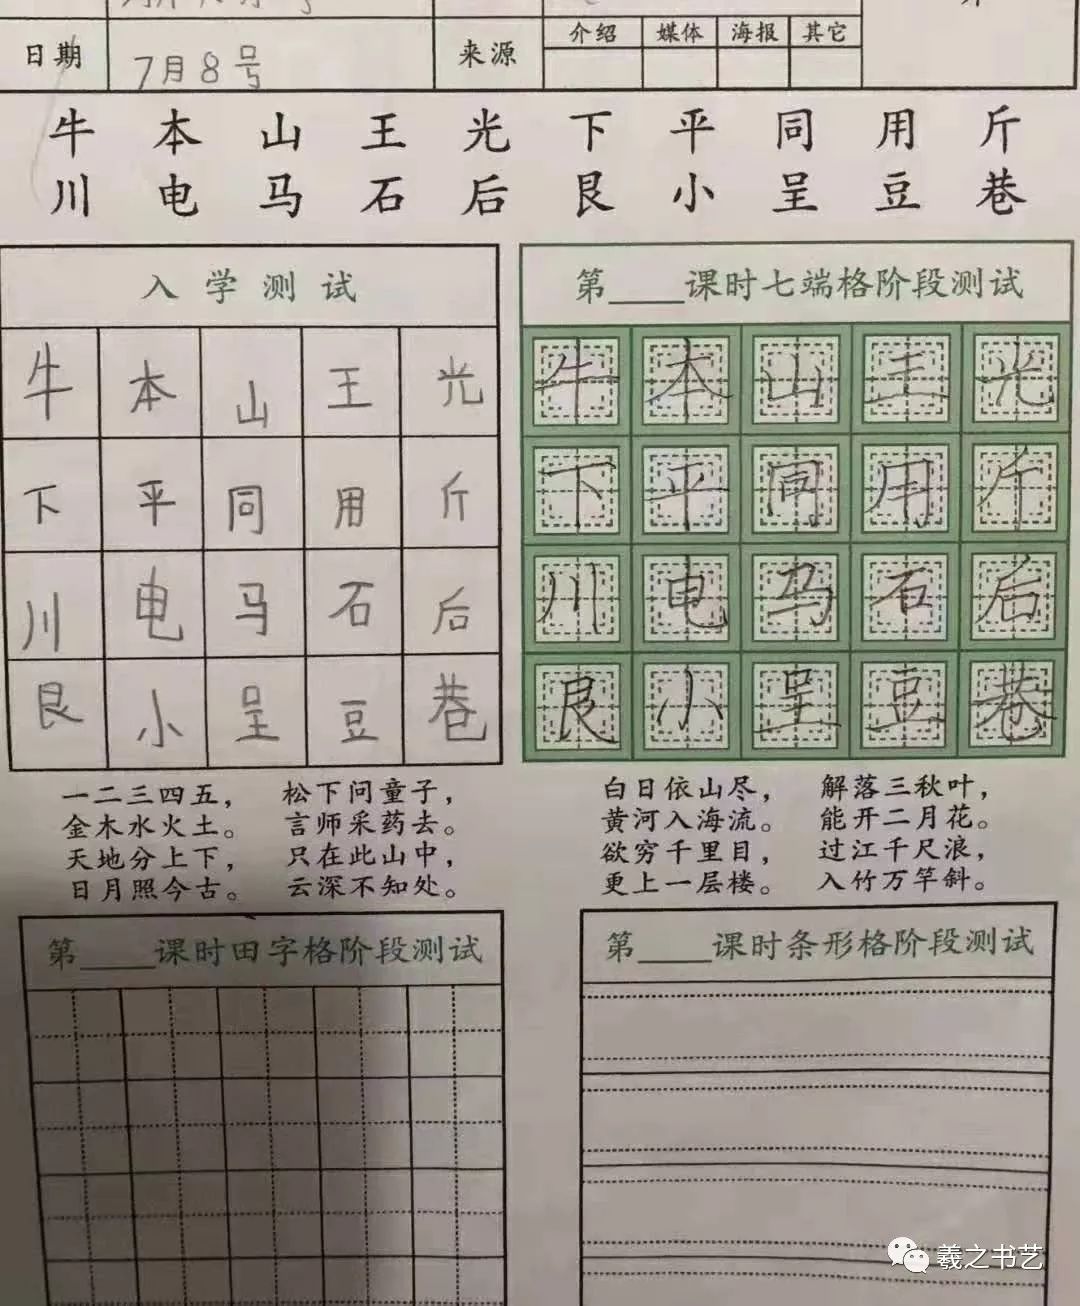 日期 7月8号 来源 介绍 媒体 海报 其它
牛 本 山 王 光 下 平 同 用 斤
川 电 马 石 后 艮 小 呈 豆 巷
入学测试
牛 本 山 王 光
下 平 同 用 斤
川 电 马 石 后
艮 小 呈 豆 巷
第____课时七端格阶段测试
牛 本 山 王 光
下 平 同 用 斤
川 电 马 石 后
艮 小 呈 豆 巷
一二三四五，
金木水火土。
天地分上下，
日月照今古。
松下问童子，
言师采药去。
只在此山中，
云深不知处。
白日依山尽，
黄河入海流。
欲穷千里目，
更上一层楼。
解落三秋叶，
能开二月花。
过江千尺浪，
入竹万竿斜。
第____课时田字格阶段测试
第____课时条形格阶段测试
羲之书艺